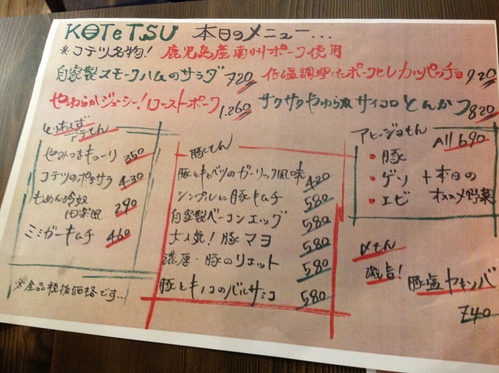 KOTeTSU 本日のメニュー...
*コテツ名物! 鹿児島産南州ポーク使用
自家製スモークハムのサラダ 720
低温調理したポークヒレカルパッチョ 920
やわらかジューシー!ローストポーク 1,260
サクサクやわらかサイコロとんかつ 820
とりあえず
やみつきキューリ 350
コテツのポテサラ 430
もめん冷奴 290
ミミガーキムチ 460
※全品税抜価格です...
豚とキャベツのガーリック風味 420
シンプルに豚キムチ 580
自家製ベーコンエッグ 580
大人気!豚マヨ 580
濃厚・豚のリエット 580
豚とキノコのバルサミコ 580
アヒージョもん
All 690
・豚
・ゲソ
・エビ
+本日の
オススメ野菜
〆もん
豚塩ヤキソバ
740